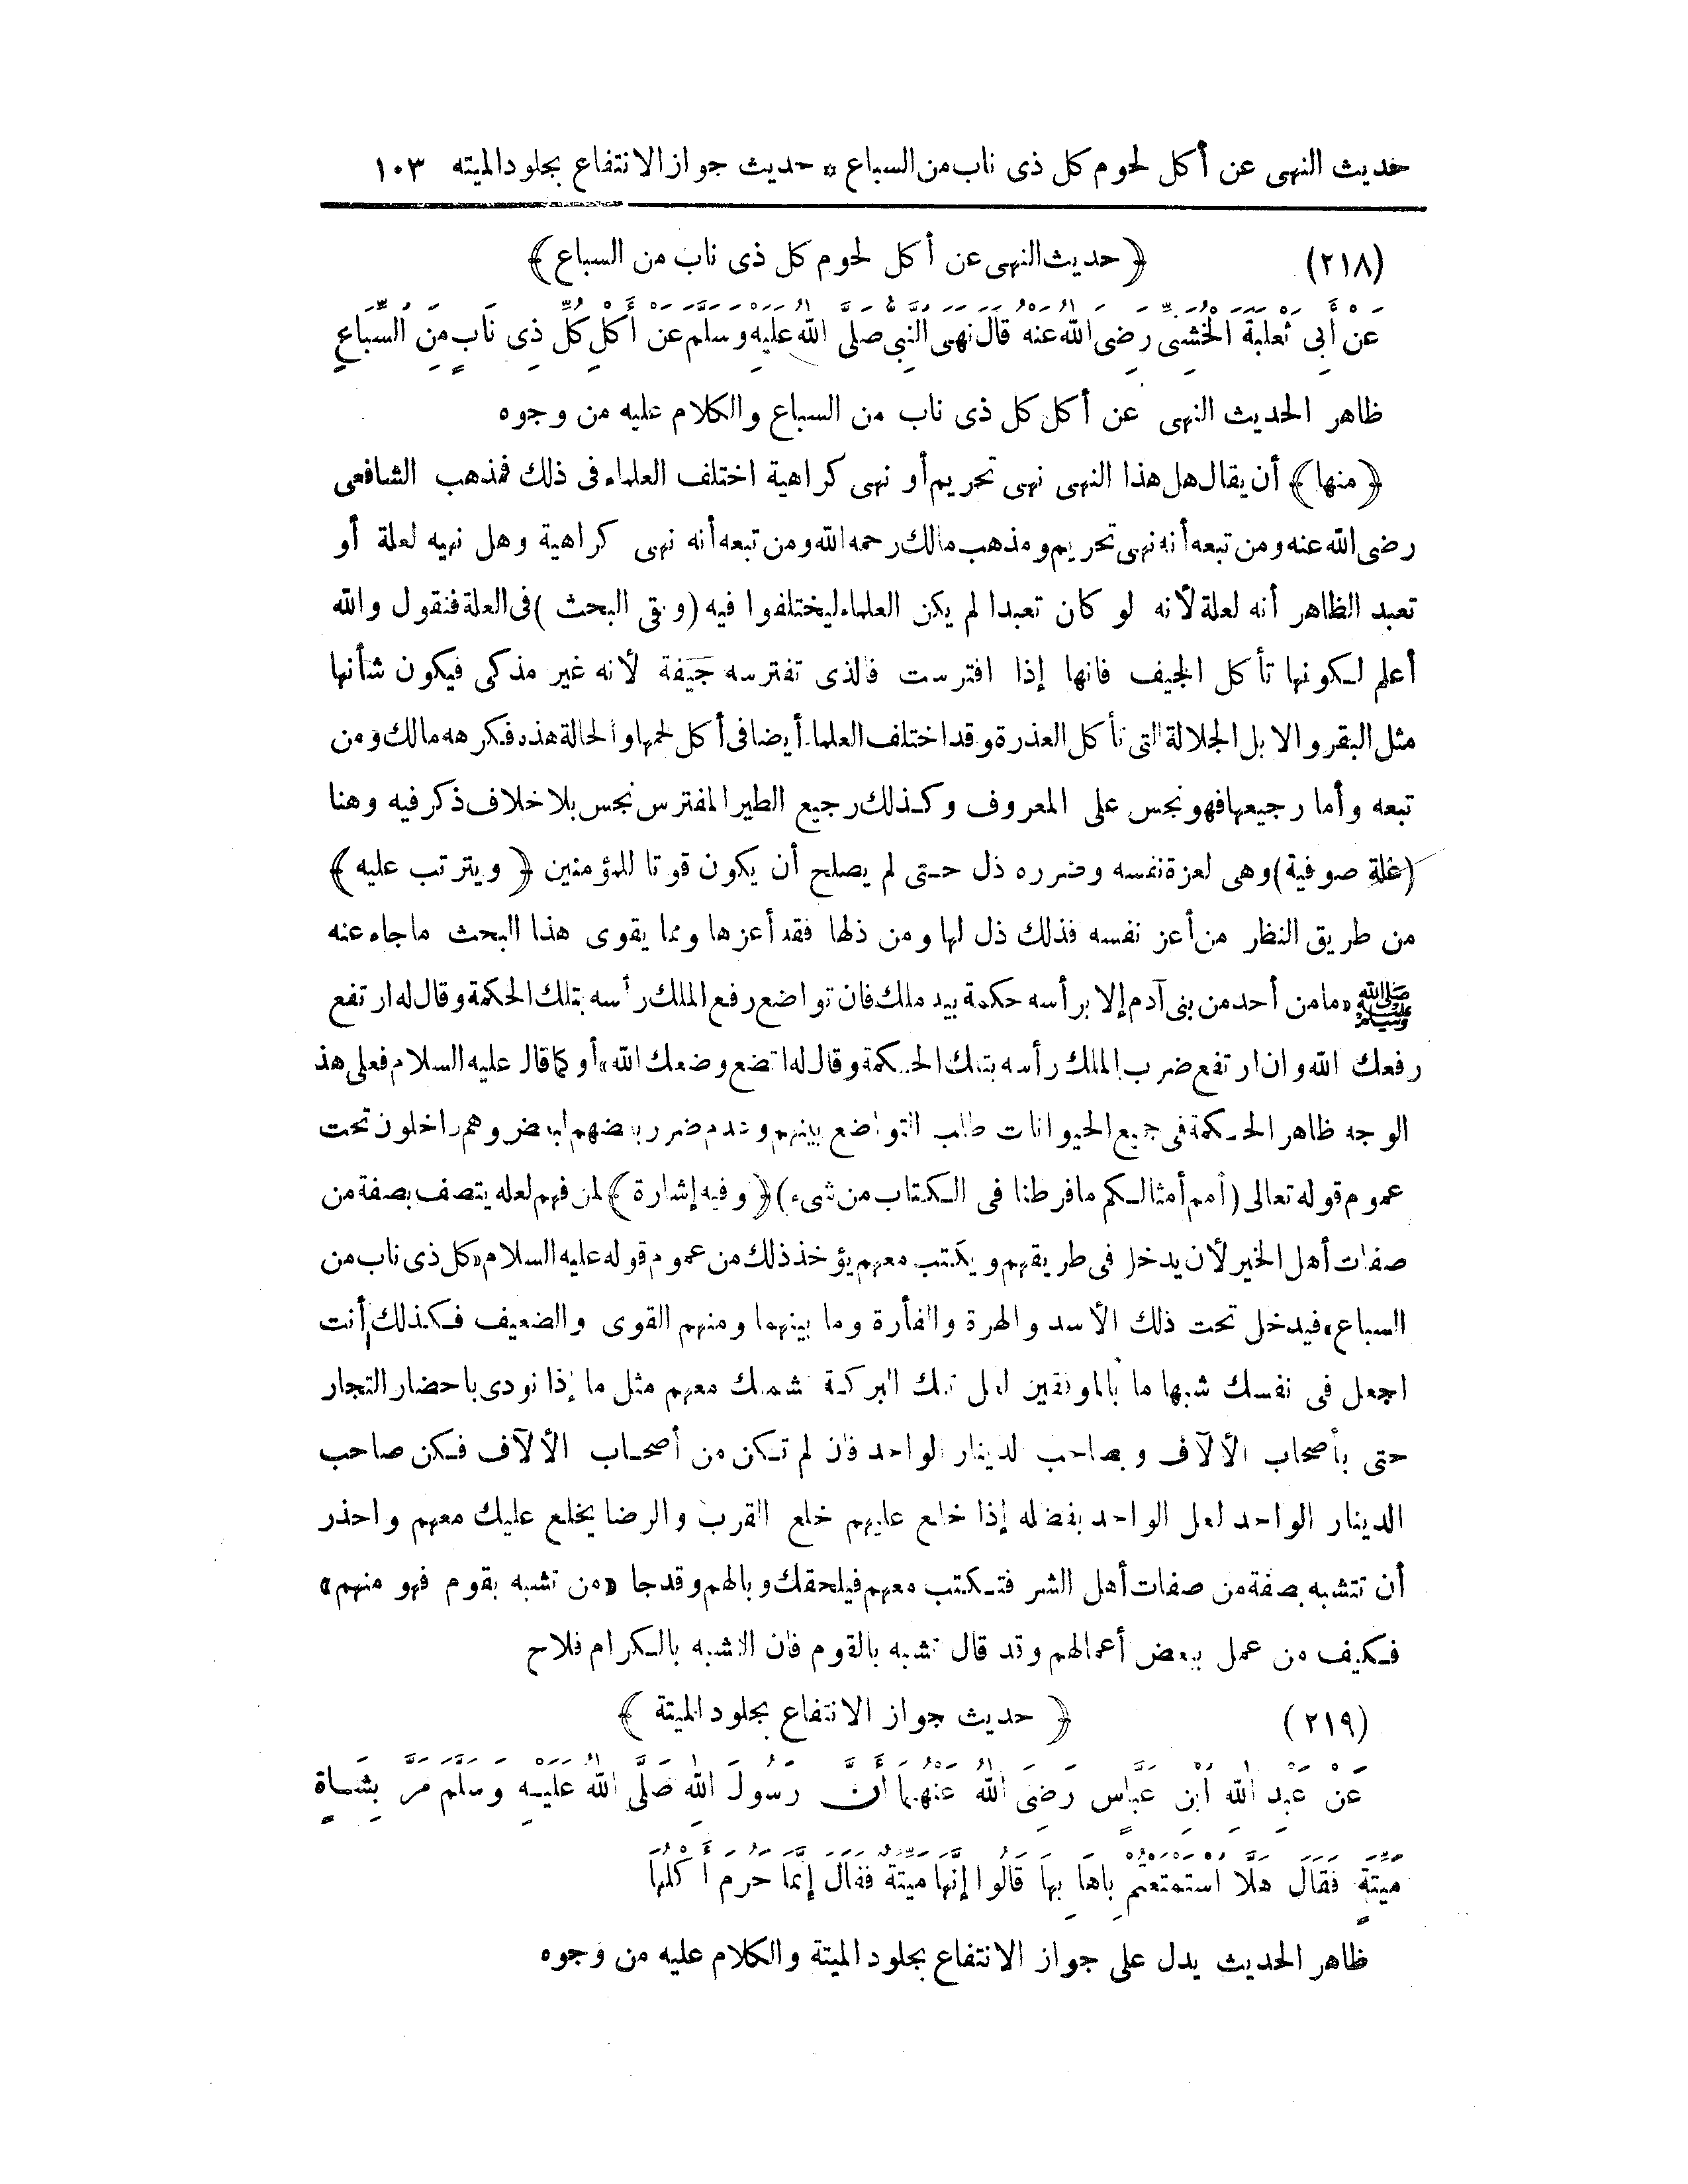 حديث النهى عن أكل لحوم كل ذى ناب من السباع * حديث جواز الانتفاع بجلود الميته ١٠٣
(٢١٨) ﴿ حديث النهى عن أكل لحوم كل ذى ناب من السباع ﴾
عَنْ أَبِى ثَعْلَبَةَ الْخُشَنِىِّ رَضِىَ اللهُ عَنْهُ قَالَ نَهَى النَّبِىُّ صَلَّى اللهُ عَلَيْهِ وَسَلَّمَ عَنْ أَكْلِ كُلِّ ذِى نَابٍ مِنَ السِّبَاعِ
ظاهر الحديث النهى عن أكل كل ذى ناب من السباع والكلام عليه من وجوه
﴿ منها ﴾ أن يقال هل هذا النهى نهى تحريم أو نهى كراهية اختلف العلماء فى ذلك فمذهب الشافعى
رضى الله عنه ومن تبعه أنه نهى تحريم ومذهب مالك رحمه الله ومن تبعه أنه نهى كراهية وهل نهيه لعلة أو
تعبد الظاهر أنه لعلة لأنه لو كان تعبدا لم يكن العلماء ليختلفوا فيه (وبقى البحث) فى العلة فنقول والله
أعلم لكونها تأكل الجيف فانها إذا افترست فالذى تفترسه جيفة لأنه غير مذكى فيكون شأنها
مثل البقر والابل الجلالة التى تأكل العذرة وقد اختلف العلماء أيضا فى أكل لحمها والحالة هذه فكرهه مالك ومن
تبعه وأما رجيعها فهو نجس على المعروف وكذلك رجيع الطير المفترس نجس بلا خلاف ذكر فيه وهنا
(علة صوفية) وهى لعزة نفسه وضرره ذل حتى لم يصلح أن يكون قوتا للمؤمنين ﴿ ويترتب عليه ﴾
من طريق النظار من أعز نفسه فذلك ذل لها ومن ذلها فقد أعزها ومما يقوى هذا البحث ما جاء عنه
ﷺ «ما من أحد من بنى آدم إلا برأسه حكمة بيد ملك فان تواضع رفع الملك رأسه بتلك الحكمة وقال له ارتفع
رفعك الله وان ارتفع ضرب الملك رأسه بتلك الحكمة وقال له اتضع وضعك الله» أو كما قال عليه السلام فعلى هذ
الوجه ظاهر الحكمة فى جميع الحيوانات طلب التواضع بينهم وعدم ضرر بعضهم لبعض وهم داخلون تحت
عموم قوله تعالى (أمم أمثالكم ما فرطنا فى الكتاب من شىء) ﴿ وفيه إشارة ﴾ لمن فهم لعله يتصف بصفة من
صفات أهل الخير لأن يدخل فى طريقهم ويكتب معهم يؤخذ ذلك من عموم قوله عليه السلام «كل ذى ناب من
السباع» فيدخل تحت ذلك الأسد والهرة والفأرة وما بينهما ومنهم القوى والضعيف فكذلك أنت
اجعل فى نفسك شبها ما بالموفقين لعل تلك البركة تشملك معهم مثل ما إذا نودى باحضار التجار
حتى بأصحاب الآلاف وبصاحب الدينار الواحد فان لم تكن من أصحاب الآلاف فكن صاحب
الدينار الواحد لعل الواحد بفضله إذا خلع عليهم خلع القرب والرضا يخلع عليك معهم واحذر
أن تتشبه بصفة من صفات أهل الشر فتكتب معهم فيلحقك وبالهم وقد جا «من تشبه بقوم فهو منهم»
فكيف من عمل ببعض أعمالهم وقد قال تشبه بالقوم فان التشبه بالكرام فلاح
(٢١٩) ﴿ حديث جواز الانتفاع بجلود الميتة ﴾
عَنْ عَبْدِ اللهِ ابْنِ عَبَّاسٍ رَضِىَ اللهُ عَنْهُمَا أَنَّ رَسُولَ اللهِ صَلَّى اللهُ عَلَيْهِ وَسَلَّمَ مَرَّ بِشَاةٍ
مَيِّتَةٍ فَقَالَ هَلَّا اسْتَمْتَعْتُمْ بِإِهَابِهَا قَالُوا إِنَّهَا مَيِّتَةٌ فَقَالَ إِنَّمَا حَرُمَ أَكْلُهَا
ظاهر الحديث يدل على جواز الانتفاع بجلود الميتة والكلام عليه من وجوه